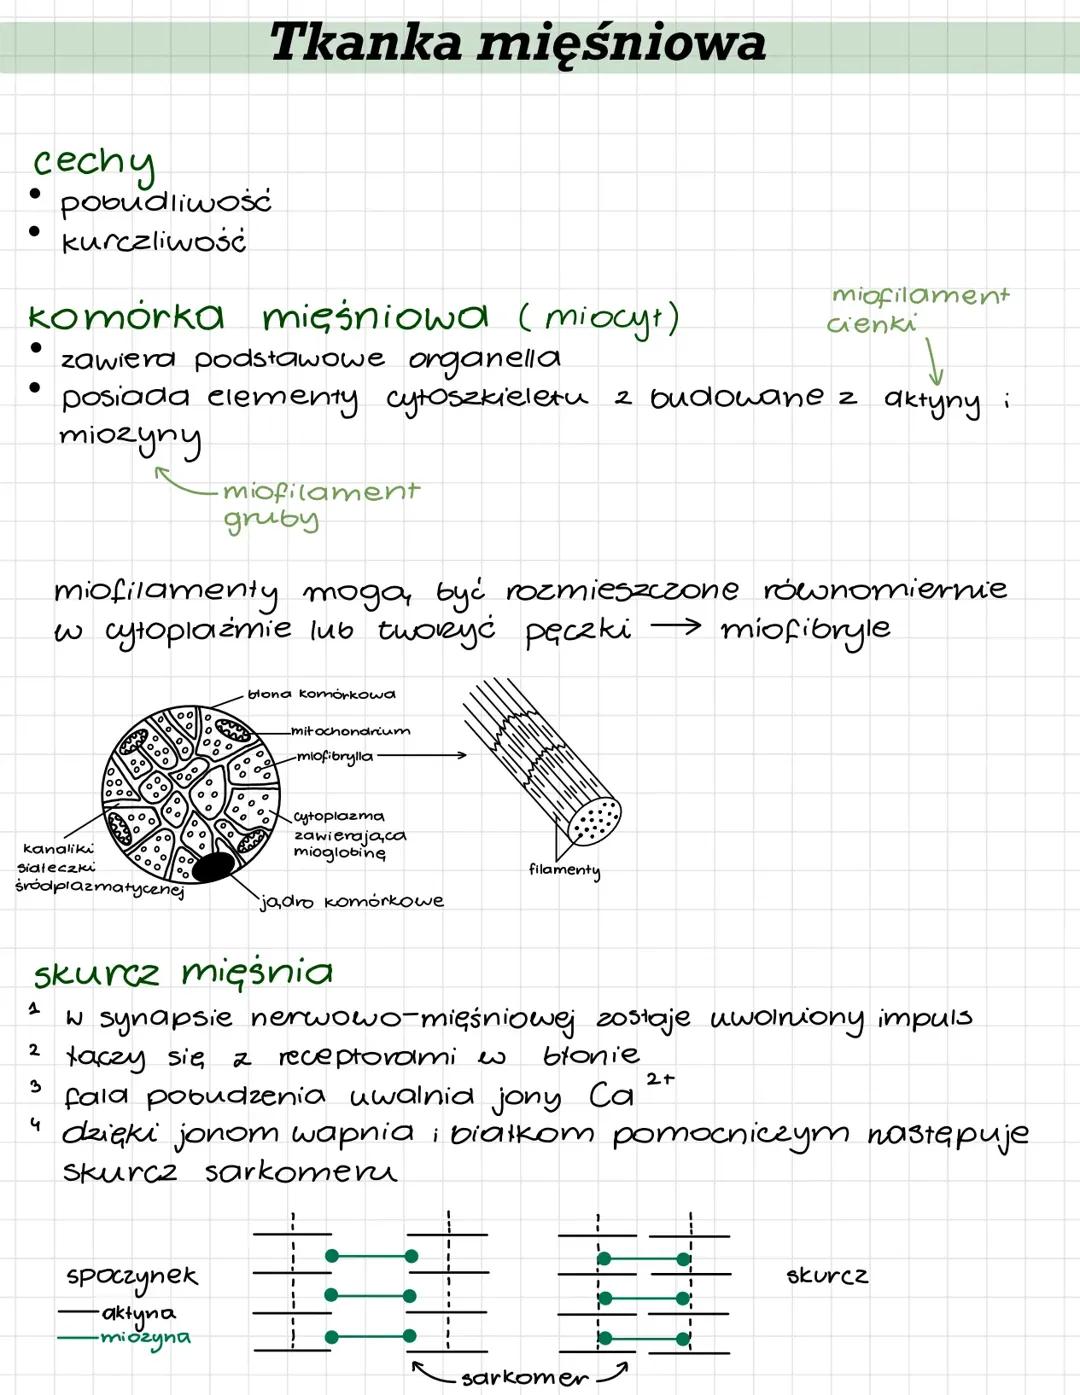 Tkanka mięśniowa
cechy
• pobudliwość
• kurczliwość
komórka mięśniowa (miocyt)
• zawiera podstawowe organella
• posiada elementy cytoszkieletu z budowane z aktyny i
miozyny
miofilament
cienki
miofilament
gruby
miofilamenty mogą być rozmieszczone równomiernie
w cytoplaźmie lub tworzyć pęczki → miofibryle
błona komórkowa
mitochondrium
miofibrylla
cytoplazma
zawierająca
mioglobinę
kanaliki
siateczki
śródplazmatycznej
jądro komórkowe
filamenty
skurcz mięśnia
1 w synapsie nerwowo-mięśniowej zostaje uwolniony impuls
2 łączy się z receptorami w błonie
3 fala pobudzenia uwalnia jony Ca 2+
4 dzięki jonom wapnia i białkom pomocniczym następuje
skurcz sarkomeru
spoczynek
aktyna
miozyna
skurcz
sarkomer